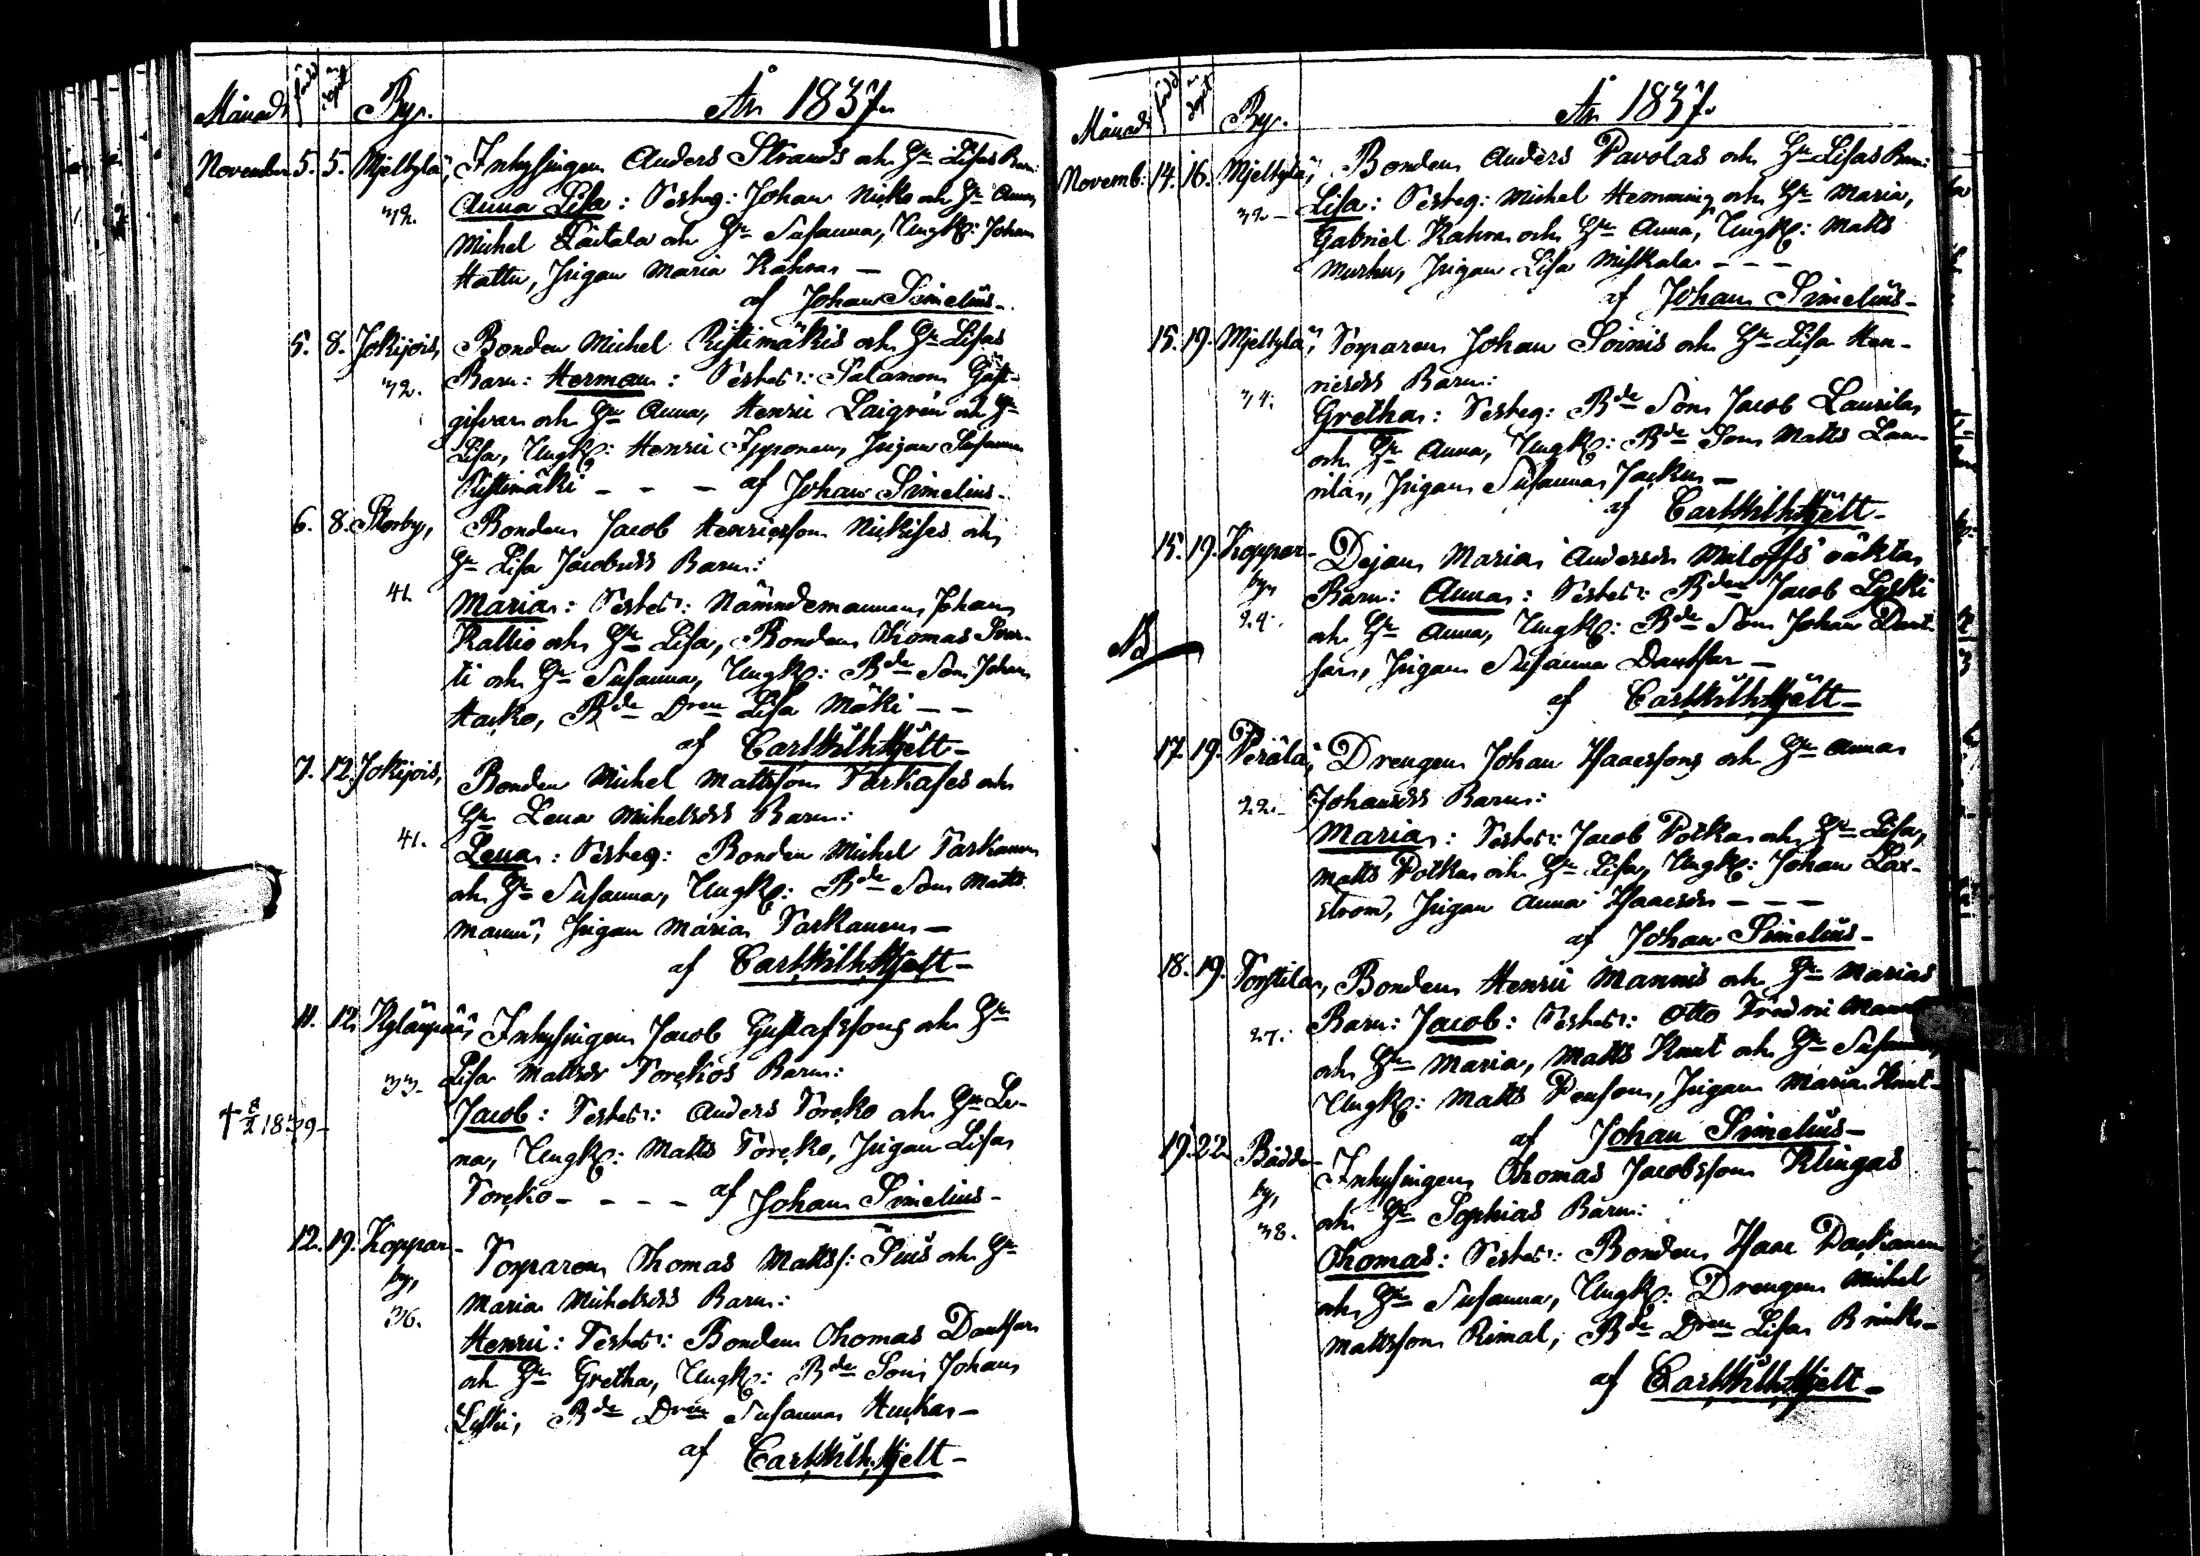 Månad född döpt By. År 1837.
November 5. 5. Mjelkylä, Inhysingen Anders Strands och H:u Lisas Barn:
32. Anna Lisa: Testeg: Johan Nicko och H:u Anna,
Michel Laitala och H:u Susanna, Ungk: Johan
Hattu, Pigan Maria Kahra –
af Johan Simelius –
5. 8. Jokijois, Bonden Michel Ristimäkis och H:u Lisas
32. Barn: Herman: Testes: Salamon Gäst-
gifvar och H:u Anna, Henric Laigrén och H:u
Lisa, Ungk: Henric Ipponen, Pigan Susanna
Ristimäki – – – af Johan Simelius –
6. 8. Storby, Bonden Jacob Henricsson Nickises och
H:u Lisa Jacobsdrs Barn:
41. Maria: Testes: Nämndemannen Johan
Kallio och H:u Lisa, Bonden Thomas
ti och H:u Susanna, Ungk: B:de Son Johan
Harko, B:de D:ren Lisa Mäki – –
af Carl Wilh. Hjelt –
7. 12. Jokijois, Bonden Michel Mattsson Tarkases och
H:u Lena Michelsdrs Barn:
41. Lena: Testeg: Bonden Michel Tarkanen
och H:u Susanna, Ungk: B:de Son Matts
Mannu, Pigan Maria Tarkanen –
af Carl Wilh. Hjelt –
11. 12. Kyläupää, Inhysingen Jacob Gustafssons och H:u
33. Lisa Mattsdr Toreckos Barn:
Jacob: Testes: Anders Torecko och H:u Le-
† 8/2 1839 –
na, Ungk: Matts Torecko, Pigan Lisa
Torecko – – – – af Johan Simelius –
12. 19. Koppar- Torparen Thomas Matts: Siuis och H:u
by, Maria Michelsdrs Barn:
36. Henric: Testes: Bonden Thomas Dantsar
och H:u Gretha, Ungk: B:de Son Johan
Lyski, B:de D:ren Susanna Huckas –
af Carl Wilh. Hjelt –
Månad född döpt By. År 1837.
Novemb: 14. 16. Mjelkylä, Bonden Anders Pavolas och H:u Lisas Barn:
32 – Lisa: Testeg: Michel Hemming och H:u Maria,
Gabriel Kahra och H:u Anna, Ungk: Matts
Murhu, Pigan Lisa Miskala – – –
af Johan Simelius –
15. 19. Mjelkylä, Torparen Johan Soinis och H:u Lisa Hen-
34. ricsdrs Barn:
Gretha: Testeg: B:de Son Jacob Laurila
och H:u Anna, Ungk: B:de Son Matts Lau-
rila, Pigan Susanna Jacku –
af Carl Wilh. Hjelt –
15. 19. Koppar- Dejan Maria Andersdr Maloffs oäkta
by, Barn: Anna: Testes: B:den Jacob Lyski
24. och H:u Anna, Ungk: B:de Son Johan Dant-
NB
sar, Pigan Susanna Dantsar –
af Carl Wilh. Hjelt –
17. 19. Perälä, Drengen Johan Isacssons och H:u Anna
22. Johansdrs Barn:
Maria: Testes: Jacob Potka och H:u Lisa,
Matts Potka och H:u Lisa, Ungk: Johan Lax-
ström, Pigan Anna Isacsdr – – –
af Johan Simelius –
18. 19. Torstila, Bonden Henric Mannis och H:u Marias
27. Barn: Jacob: Testes: Otto Fredric
och H:u Maria, Matts Knut och H:u
Ungk: Matts Penson, Pigan Maria Knut –
af Johan Simelius –
19. 22. Bådde- Inhysingen Thomas Jacobsson Klingas
by, och H:u Sophias Barn:
38. Thomas: Testes: Bonden Isaac Dackanen
och H:u Susanna, Ungk: Drengen Michel
Mattsson Rimal, B:de D:ren Lisa
af Carl Wilh. Hjelt –